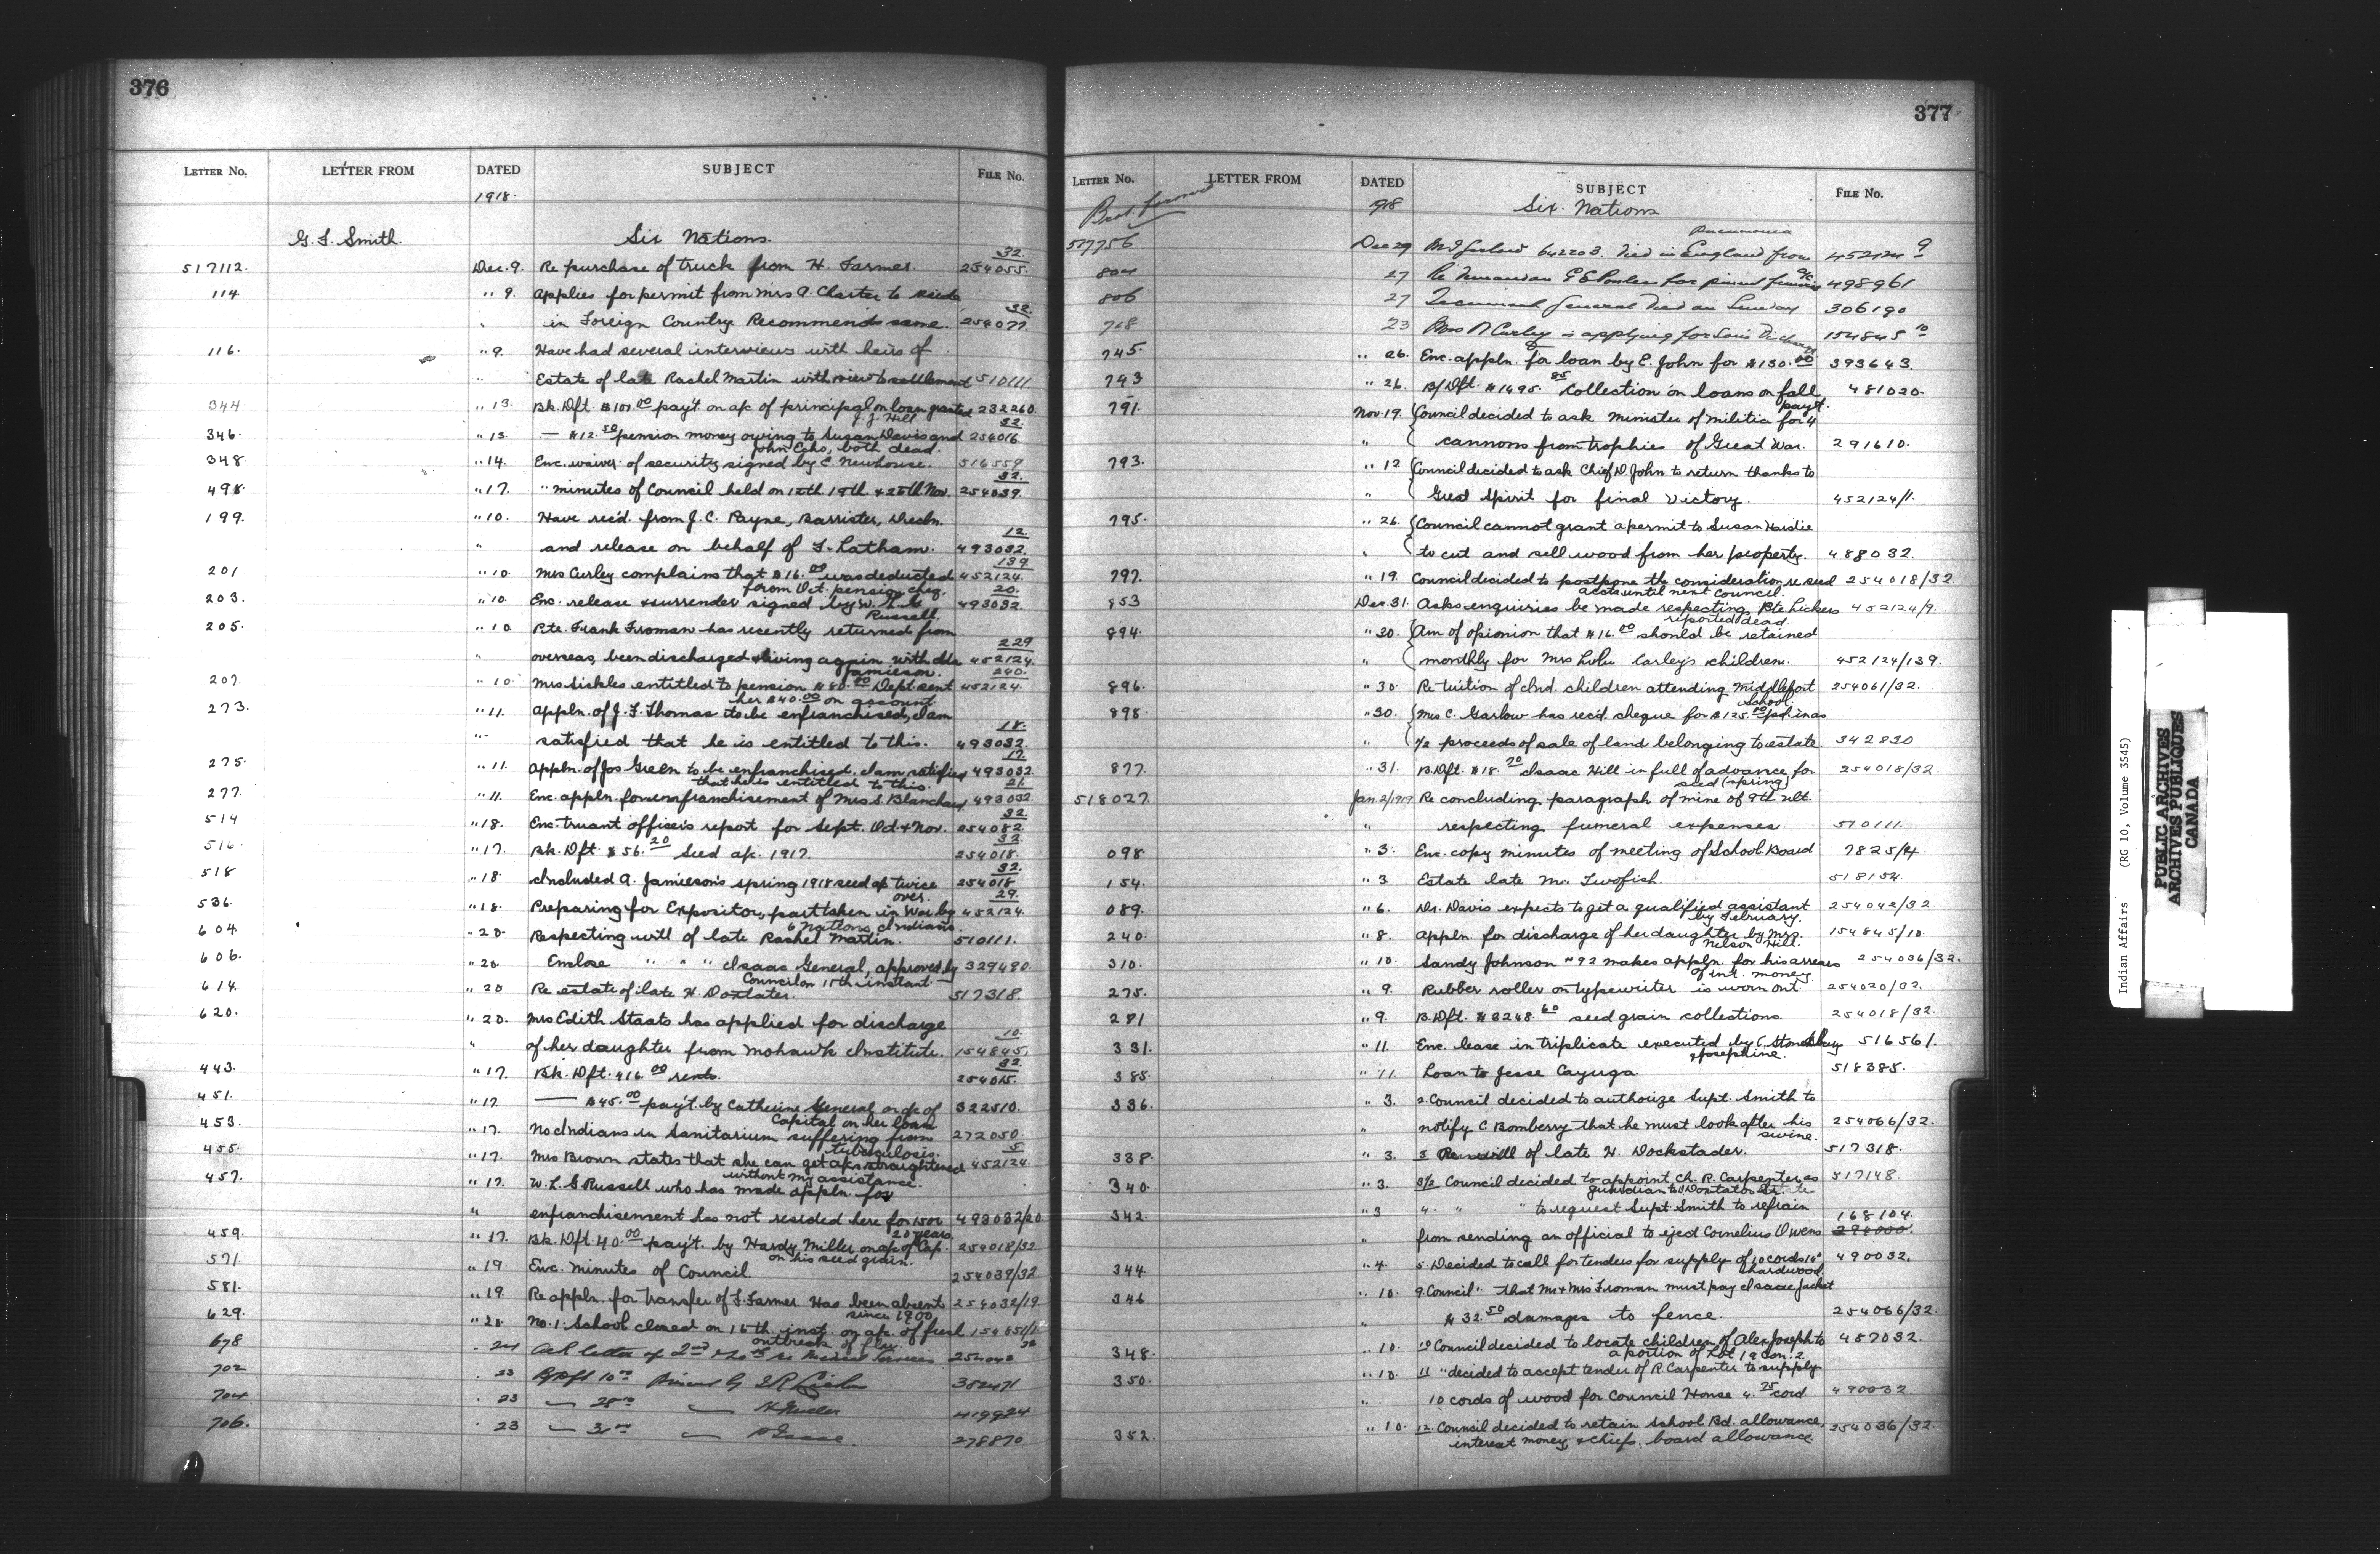 376
LETTER NO. LETTER FROM DATED SUBJECT FILE NO.
1918.
G. J. Smith. Six Nations.
517112. Dec. 9. Re purchase of truck from H. Farmer. 254055. 32.
114. " 9. Applies for permit from Mrs A. Charter to reside
" in Foreign Country Recommends same. 254077. 32.
116. " 9. Have had several interviews with heirs of
" Estate of late Rachel Martin with view to settlement 510111.
344 " 13. Bk. Dft. $100.00 pay't on a/c of principal on loan granted 232260.
J. J. Hill.
346. " 13. — $12.50 pension money owing to Susan Davis and 254016. 32.
John Echo, both dead.
348. " 14. Enc. waiver of security signed by C. Newhouse. 516559
498. " 17. " minutes of Council held on 12th 19th & 26th Nov. 254039. 32.
199. " 10. Have rec'd. from J. C. Payne, Barrister,
" and release on behalf of F. Latham. 493032. 12.
201 " 10. Mrs Curley complains that $16.00 was deducted 452124. 139
from Oct. pension cheq.
203. " 10. Enc. release & surrender signed by W. L. G. 493032. 20.
Russell.
205. " 10 Pte. Frank Froman has recently returned from
" overseas, been discharged & living again with 452124. 229
Jamieson.
207. " 10. Mrs Sickles entitled to pension $80.00 Dept. sent 452124. 240.
her $40.00 on account
273. " 11. Appln. of J. F. Thomas to be enfranchised, I am
" satisfied that he is entitled to this. 493032. 18.
275. " 11. Appln. of Jos Green to be enfranchised. I am satisfied 493032. 17.
that he is entitled to this.
277. " 11. Enc. appln. for enfranchisement of Mrs S. Blanchard, 493032 21.
514 " 18. Enc. truant officer's report for Sept. Oct & Nov. 254082. 32.
516. " 17. Bk. Dft. $56.20 Seed a/c. 1917. 254018. 32
518 " 18 Included A. Jamieson's spring 1918 seed a/c twice 254018 32.
over.
536. " 18. Preparing for Expositor, part taken in War by 452124. 29.
6 Nations Indians.
604. " 20. Respecting will of late Rachel Martin. 510111.
606. " 20. Enclose " " " Isaac General, approved by 329480.
Council on 15th instant
614. " 20 Re estate of late H. Doxtater. 517318.
620. " 20. Mrs Edith Staats has applied for discharge
" of her daughter from Mohawk Institute. 154845. 10.
443. " 17. Bk. Dft. $16.00 rents. 254015. 32
451. " 17 — $45.00 pay't. by Catherine General on a/c of 322510.
Capital on her loan
453. " 17. No Indians in Sanitarium suffering from 272050.
tuberculosis.
455. " 17. Mrs Brown states that she can get a/cs straightened 452124. 5
without my assistance.
457. " 17. W. L. G Russell who has made appln. for
" enfranchisement has not resided here for 15 or 493032/20
20 years.
459. " 17. Bk. Dft. 40.00 pay't. by Hardy Miller on a/c of Cap. 254018/32
on his seed grain.
571. " 19 Enc. Minutes of Council. 254039/32.
581. " 19. Re appln. for transfer of F. Farmer Has been absent 254032/19
since 1900.
629. " 20. No. 1. School closed on 16th. inst. on a/c. of fresh
outbreak of flu.
678 " 24 Ack letter of 2nd
702 " 23 B/Dft 10.00 382471
704 " 23 — 28.00 — 419924
706. " 23 — 31.00 — Isaac. 278870
377
LETTER NO. LETTER FROM DATED SUBJECT FILE NO.
Brot. forward 1918 Six Nations
517756 Dec 29 Garlow 642203. Died in England from 452124 9
Pneumonia
804 27 Re 498961
806 27 Tecumseh General died on Sunday 306190
768 23 Mrs N Curley is applying for Discharge 154845 10
745. " 26. Enc. appln. for loan by E. John for $130.00 393643.
743 " 26. B/Dft. $1495.85 Collection on loans on fall 481020.
pay't.
791. Nov. 19. Council decided to ask Minister of Militia for 4
" cannons from trophies of Great War. 291610.
793. " 12 Council decided to ask Chief D. John to return thanks to
" Great Spirit for final Victory. 452124/1.
795. " 26. Council cannot grant a permit to Susan Hardie
" to cut and sell wood from her property. 488032.
797. " 19. Council decided to postpone the consideration re seed 254018/32.
accts until next Council.
853 Dec. 31. Asks enquiries be made respecting Pte. Lickers 452124/9.
reported dead.
894. " 30. Am of opionion that $16.00 should be retained
" monthly for Mrs Lulu Carley's children. 452124/139.
896. " 30. Re tuition of Ind. children attending Middleport 254061/32.
School.
898. " 30. Mrs C. Garlow has rec'd. cheque for $125.00 pd. in as
" 1/2 proceeds of sale of land belonging to estate. 342830
877. " 31. B. Dft. $18.70 Isaac Hill in full of advance for 254018/32.
seed (spring)
518027. Jan. 2/1919 Re concluding paragraph of mine of 9th ult.
" respecting funeral expenses. 510111.
098. " 3. Enc. copy minutes of meeting of School Board 7825/4.
154. " 3 Estate late M. Twofish. 518154.
089. " 6. Dr. Davis expects to get a qualified assistant 254042/32
by February.
240. " 8. Appln. for discharge of her daughter by Mrs. 154845/10.
Nelson Hill.
310. " 10. Sandy Johnson #92 makes appln. for his arrears 254036/32.
of int. money
275. " 9. Rubber roller on typewriter is worn out. 254020/32.
281 " 9. B. Dft. $3248.60 seed grain collections. 254018/32.
331. " 11. Enc. lease in triplicate executed by C. 516561.
& Josephine.
385. " 11 Loan to Jesse Cayuga. 518385.
336. " 3. 2. Council decided to authorize Supt. Smith to
" notify C Bomberry that he must look after his 254066/32.
swine.
338. " 3. 3 Re will of late H. Dockstader. 517318.
340. " 3. 3/2 Council decided to appoint Ch. R. Carpenter as 517148.
guardian to
342. " 3 4. " " to request Supt. Smith to refrain 168104.
" from sending an official to eject Cornelius Owens
344. " 4. 5. Decided to call for tenders for supply of 10 cords 14" 490032.
hardwood.
346 " 10. 9. Council " that Mr & Mrs Froman must pay Isaac Jacket
" $32.50 damages to fence. 254066/32.
348. " 10. 10 Council decided to locate children of Alex Joseph to 487032.
a portion of Lot 19 Con. 2.
350. " 10. 11 " decided to accept tender of R. Carpenter to supply
" 10 cords of wood for Council House 4.75 cord 490032.
352. " 10. 12. Council decided to retain School Bd. allowance, 254036/32.
interest money & chiefs board allowance.
Indian Affairs (RG 10, Volume 3545)
PUBLIC ARCHIVES
ARCHIVES PUBLIQUES
CANADA